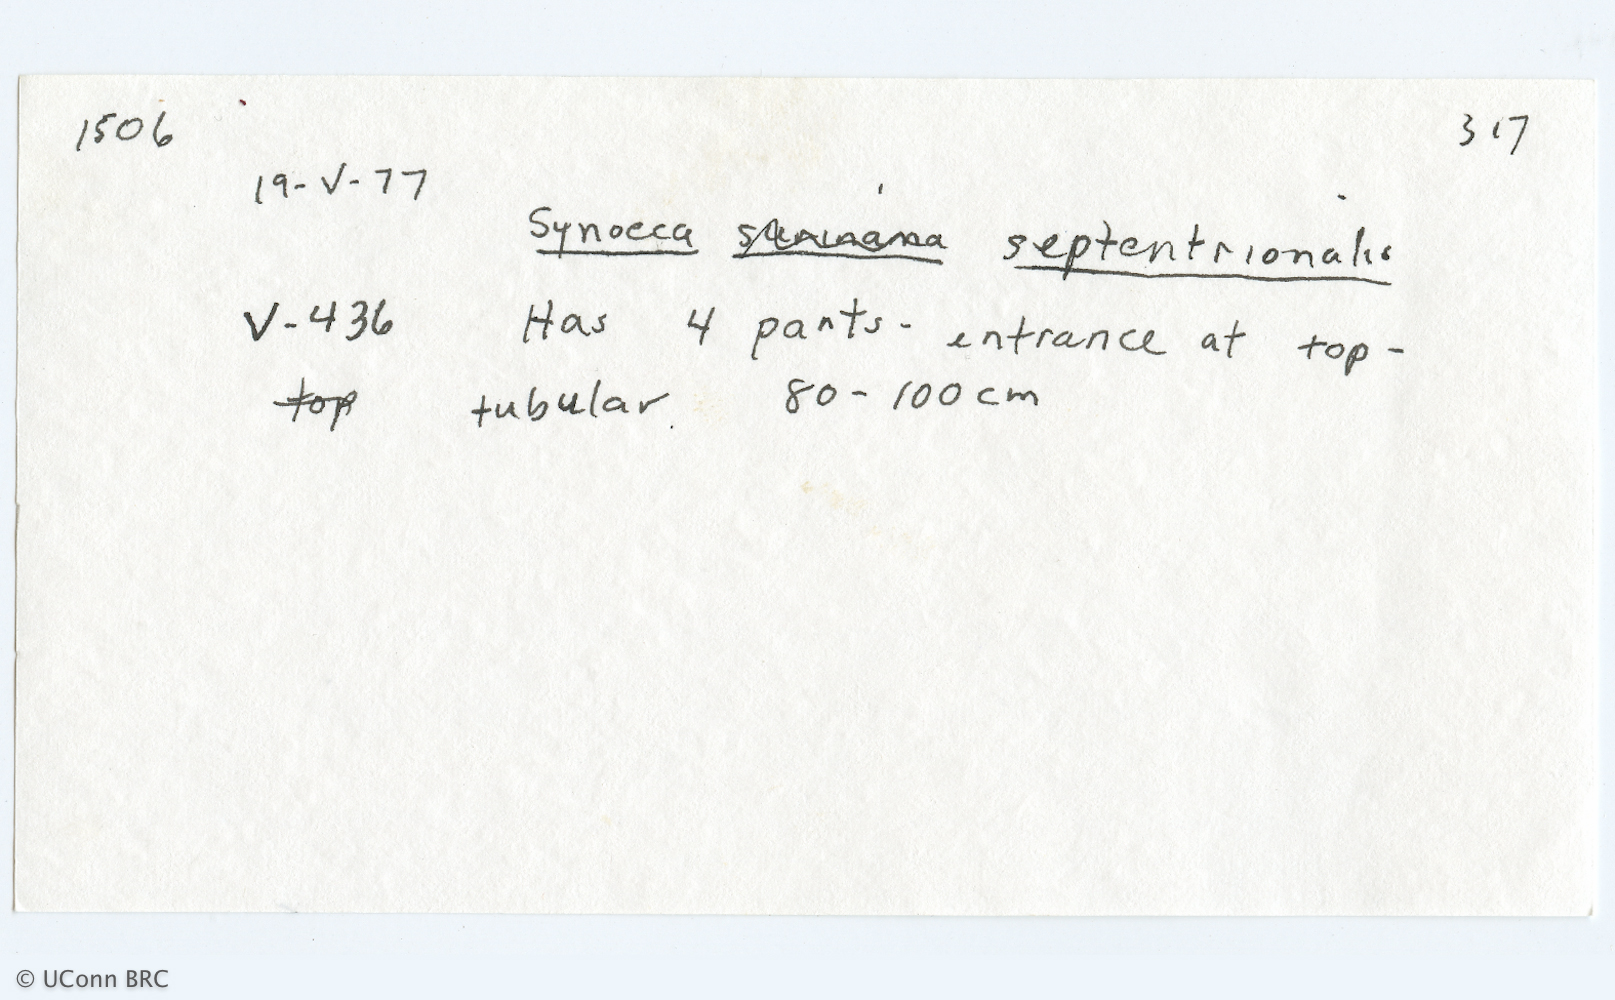 1506
317
19-V-77
Synoeca surinama septentrionalis
V-436 Has 4 parts - entrance at top -
top tubular. 80-100cm
© UConn BRC